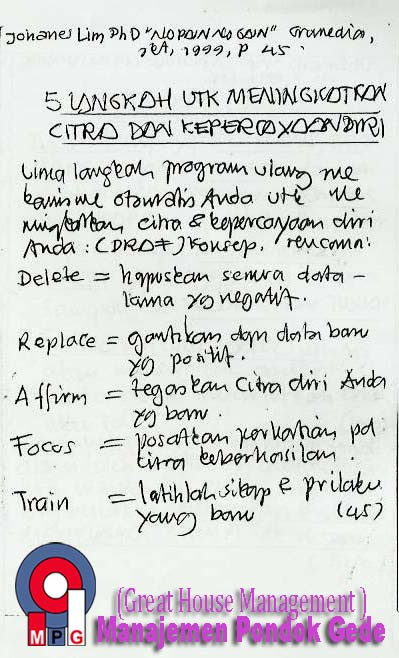 Johanes Lim PhD "NO PAIN NO GAIN" Gramedia,
Jkt, 1999, p 45.
5 LANGKAH UTK MENINGKATKAN
CITRA DAN KEPERCAYAAN DIRI
Lima langkah program ulang me
kanisme otomatis Anda utk me
ningkatkan citra & kepercayaan diri
Anda : (DRAFT) Konsep, rencana:
Delete = hapuskan semua data-
lama yg negatif.
Replace = gantikan dgn data baru
yg positif.
Affirm = tegaskan Citra diri Anda
yg baru.
Focus = pusatkan perhatian pd
citra keberhasilan.
Train = latihlah sikap & prilaku
yang baru (45)
MPG
(Great House Management )
Manajemen Pondok Gede